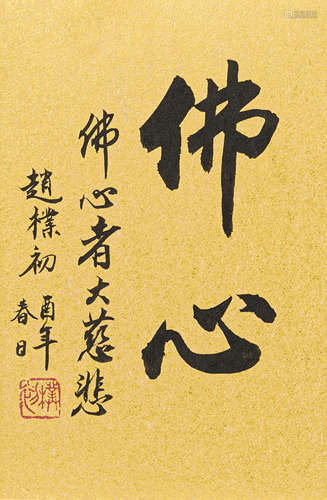 佛心
佛心者大慈悲
趙樸初
酉年
春日
樸初